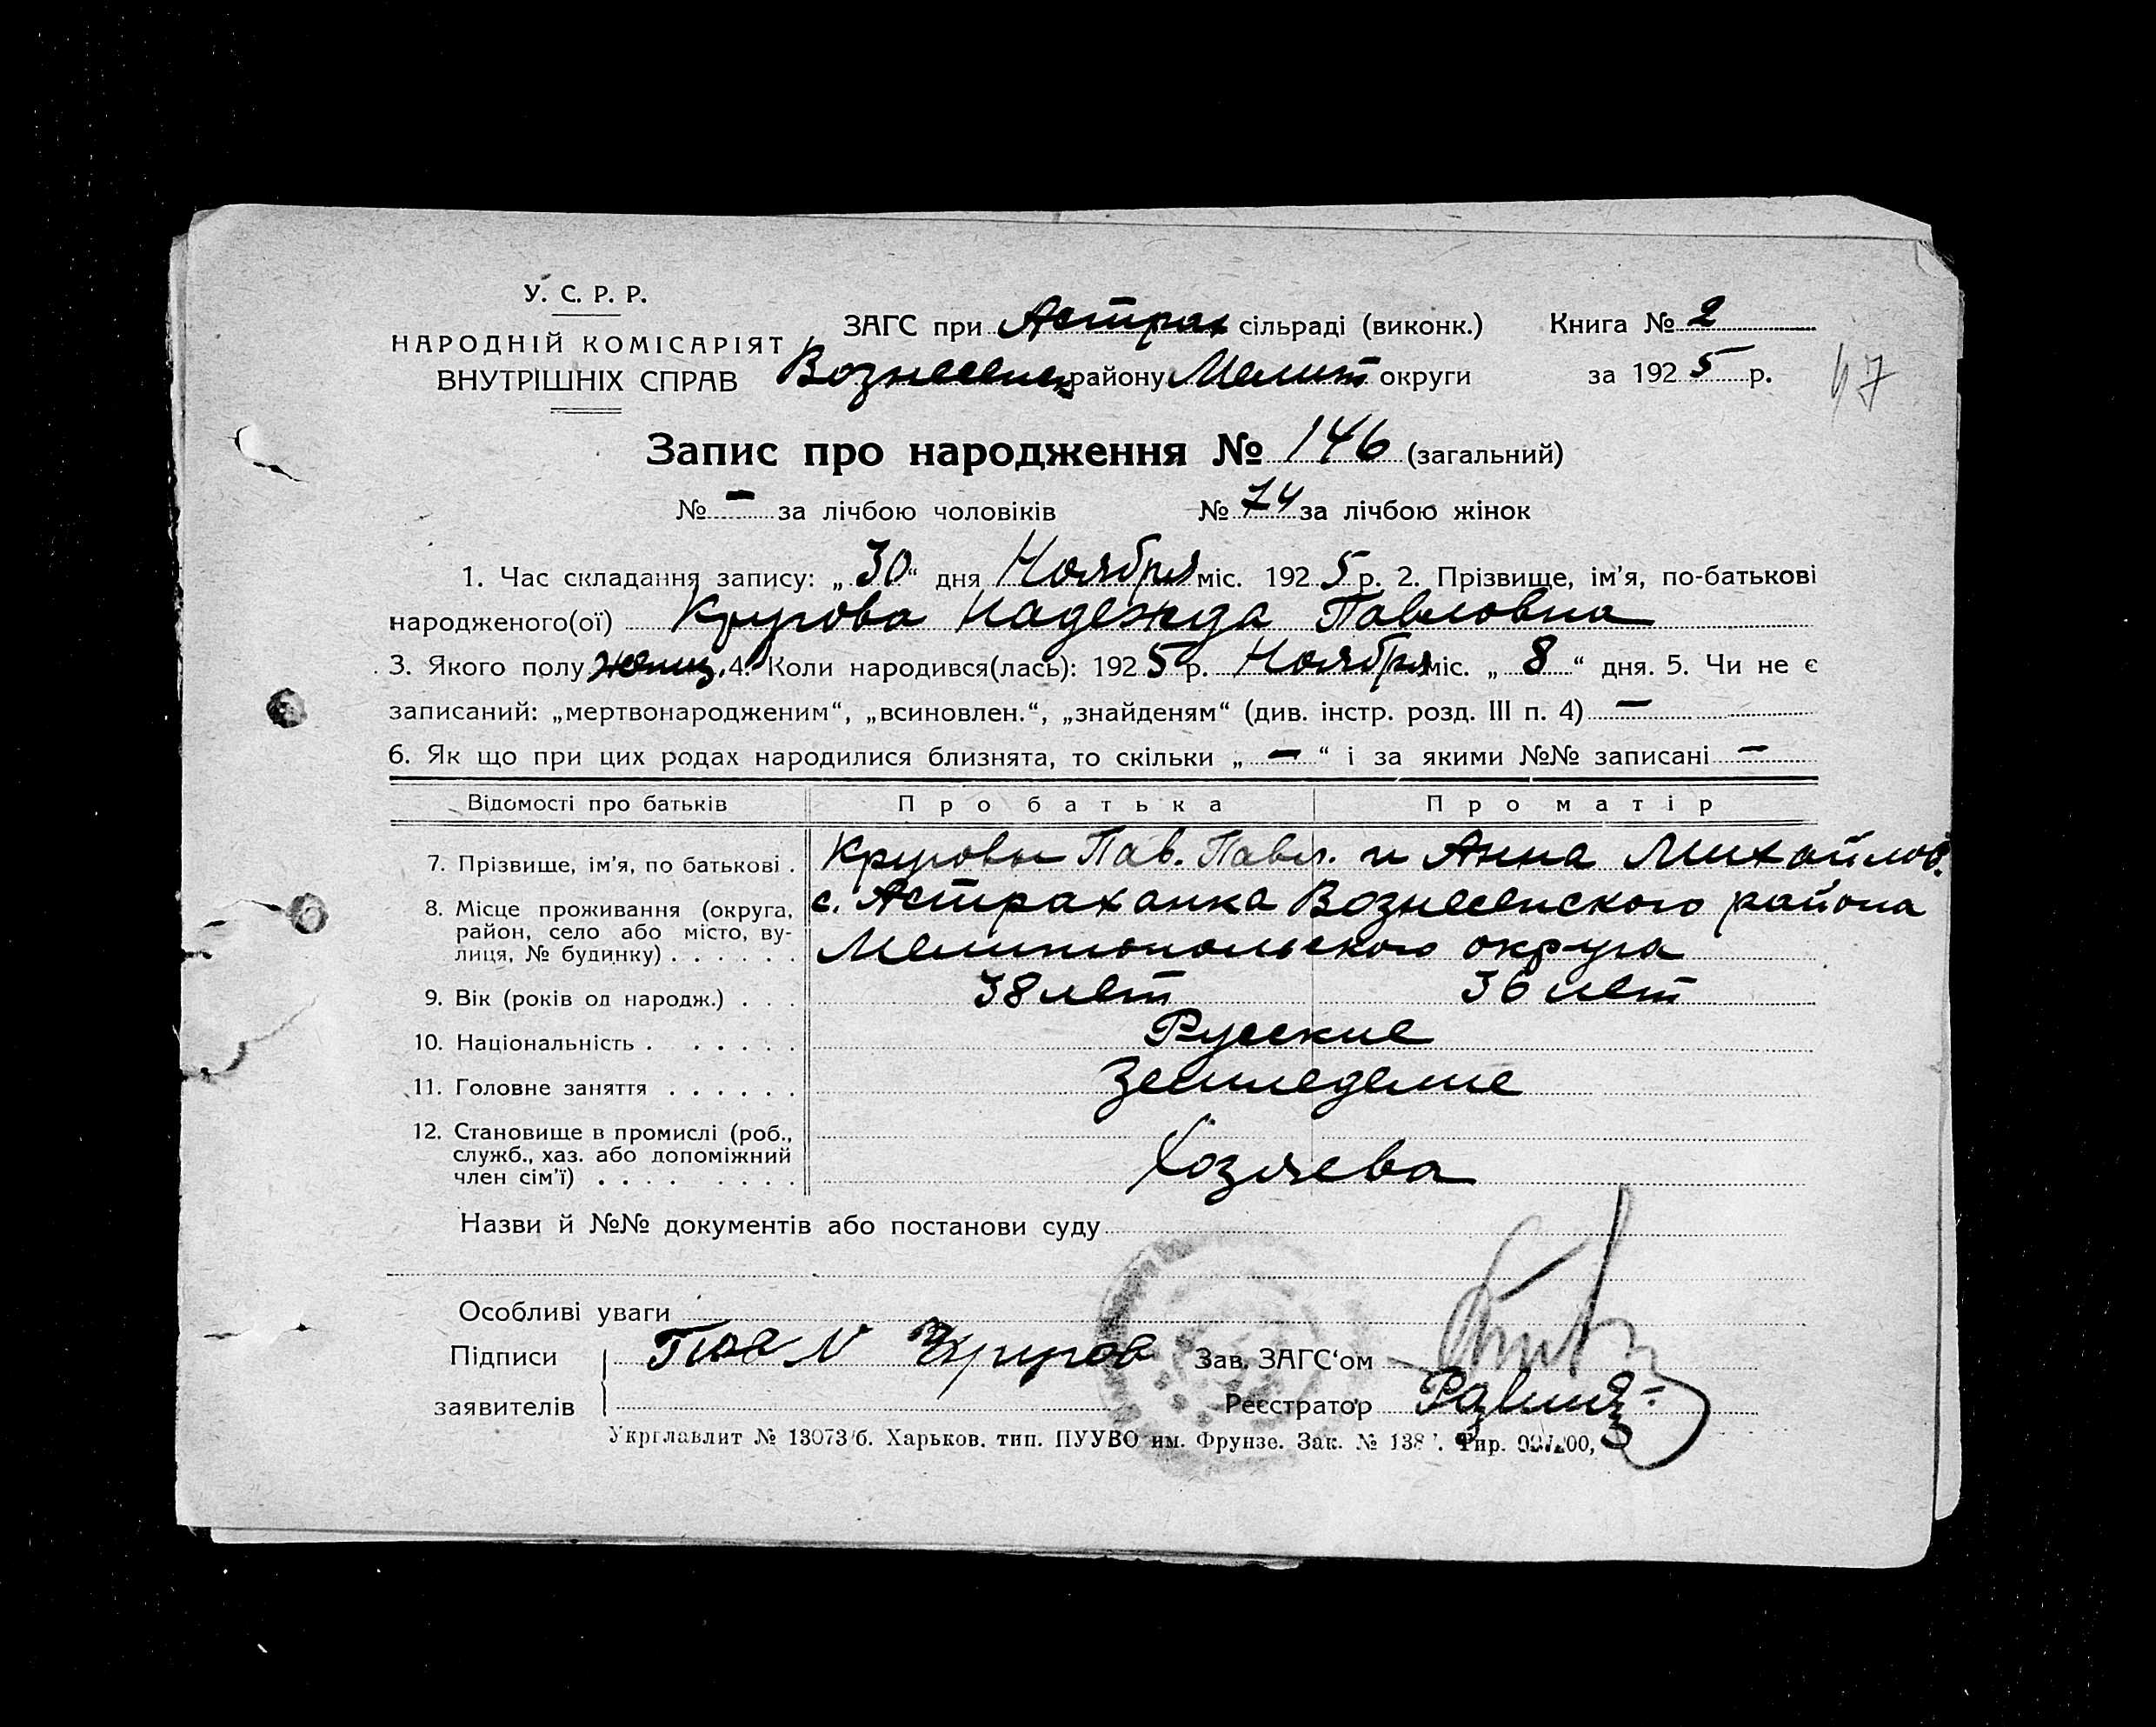 У. С. Р. Р.
НАРОДНІЙ КОМІСАРІЯТ
ВНУТРІШНІХ СПРАВ
ЗАГС при Астрах сільраді (виконк.) Книга № 2
Вознесенск району Мелит округи за 1925 р.
47
Запис про народження № 146 (загальний)
№ – за лічбою чоловіків № 74 за лічбою жінок
1. Час складання запису: „30“ дня Ноября міс. 1925 р. 2. Прізвище, ім’я, по-батькові
народженого(ої) Кругова Надежда Павловна
3. Якого полу женщ. 4. Коли народився(лась): 1925 р. Ноября міс. „8“ дня. 5. Чи не є
записаний: „мертвонародженим“, „всиновлен.“, „знайденям“ (див. інстр. розд. III п. 4) –
6. Як що при цих родах народилися близнята, то скільки „–“ і за якими №№ записані –
Відомості про батьків Про батька Про матір
7. Прізвище, ім’я, по батькові . Круговы Пав. Павл. и Анна Михайлов.
8. Місце проживання (округа, район, село або місто, ву-лиця, № будинку) . . . . . . с. Астраханка Вознесенского района
Мелитопольского округа
9. Вік (років од народж.) . . . 38 лет 36 лет
10. Національність . . . . . . Русские
11. Головне заняття . . . . . . Земледелие
12. Становище в промислі (роб., служб., хаз. або допоміжний член сім’ї) . . . . . . . . Хозяева
Назви й №№ документів або постанови суду
Особливі уваги
Підписи Кругов Зав. ЗАГС‘ом
заявителів Реєстратор
Укрглавлит № 13073/б. Харьков. тип. ПУУВО им. Фрунзе. Зак. №